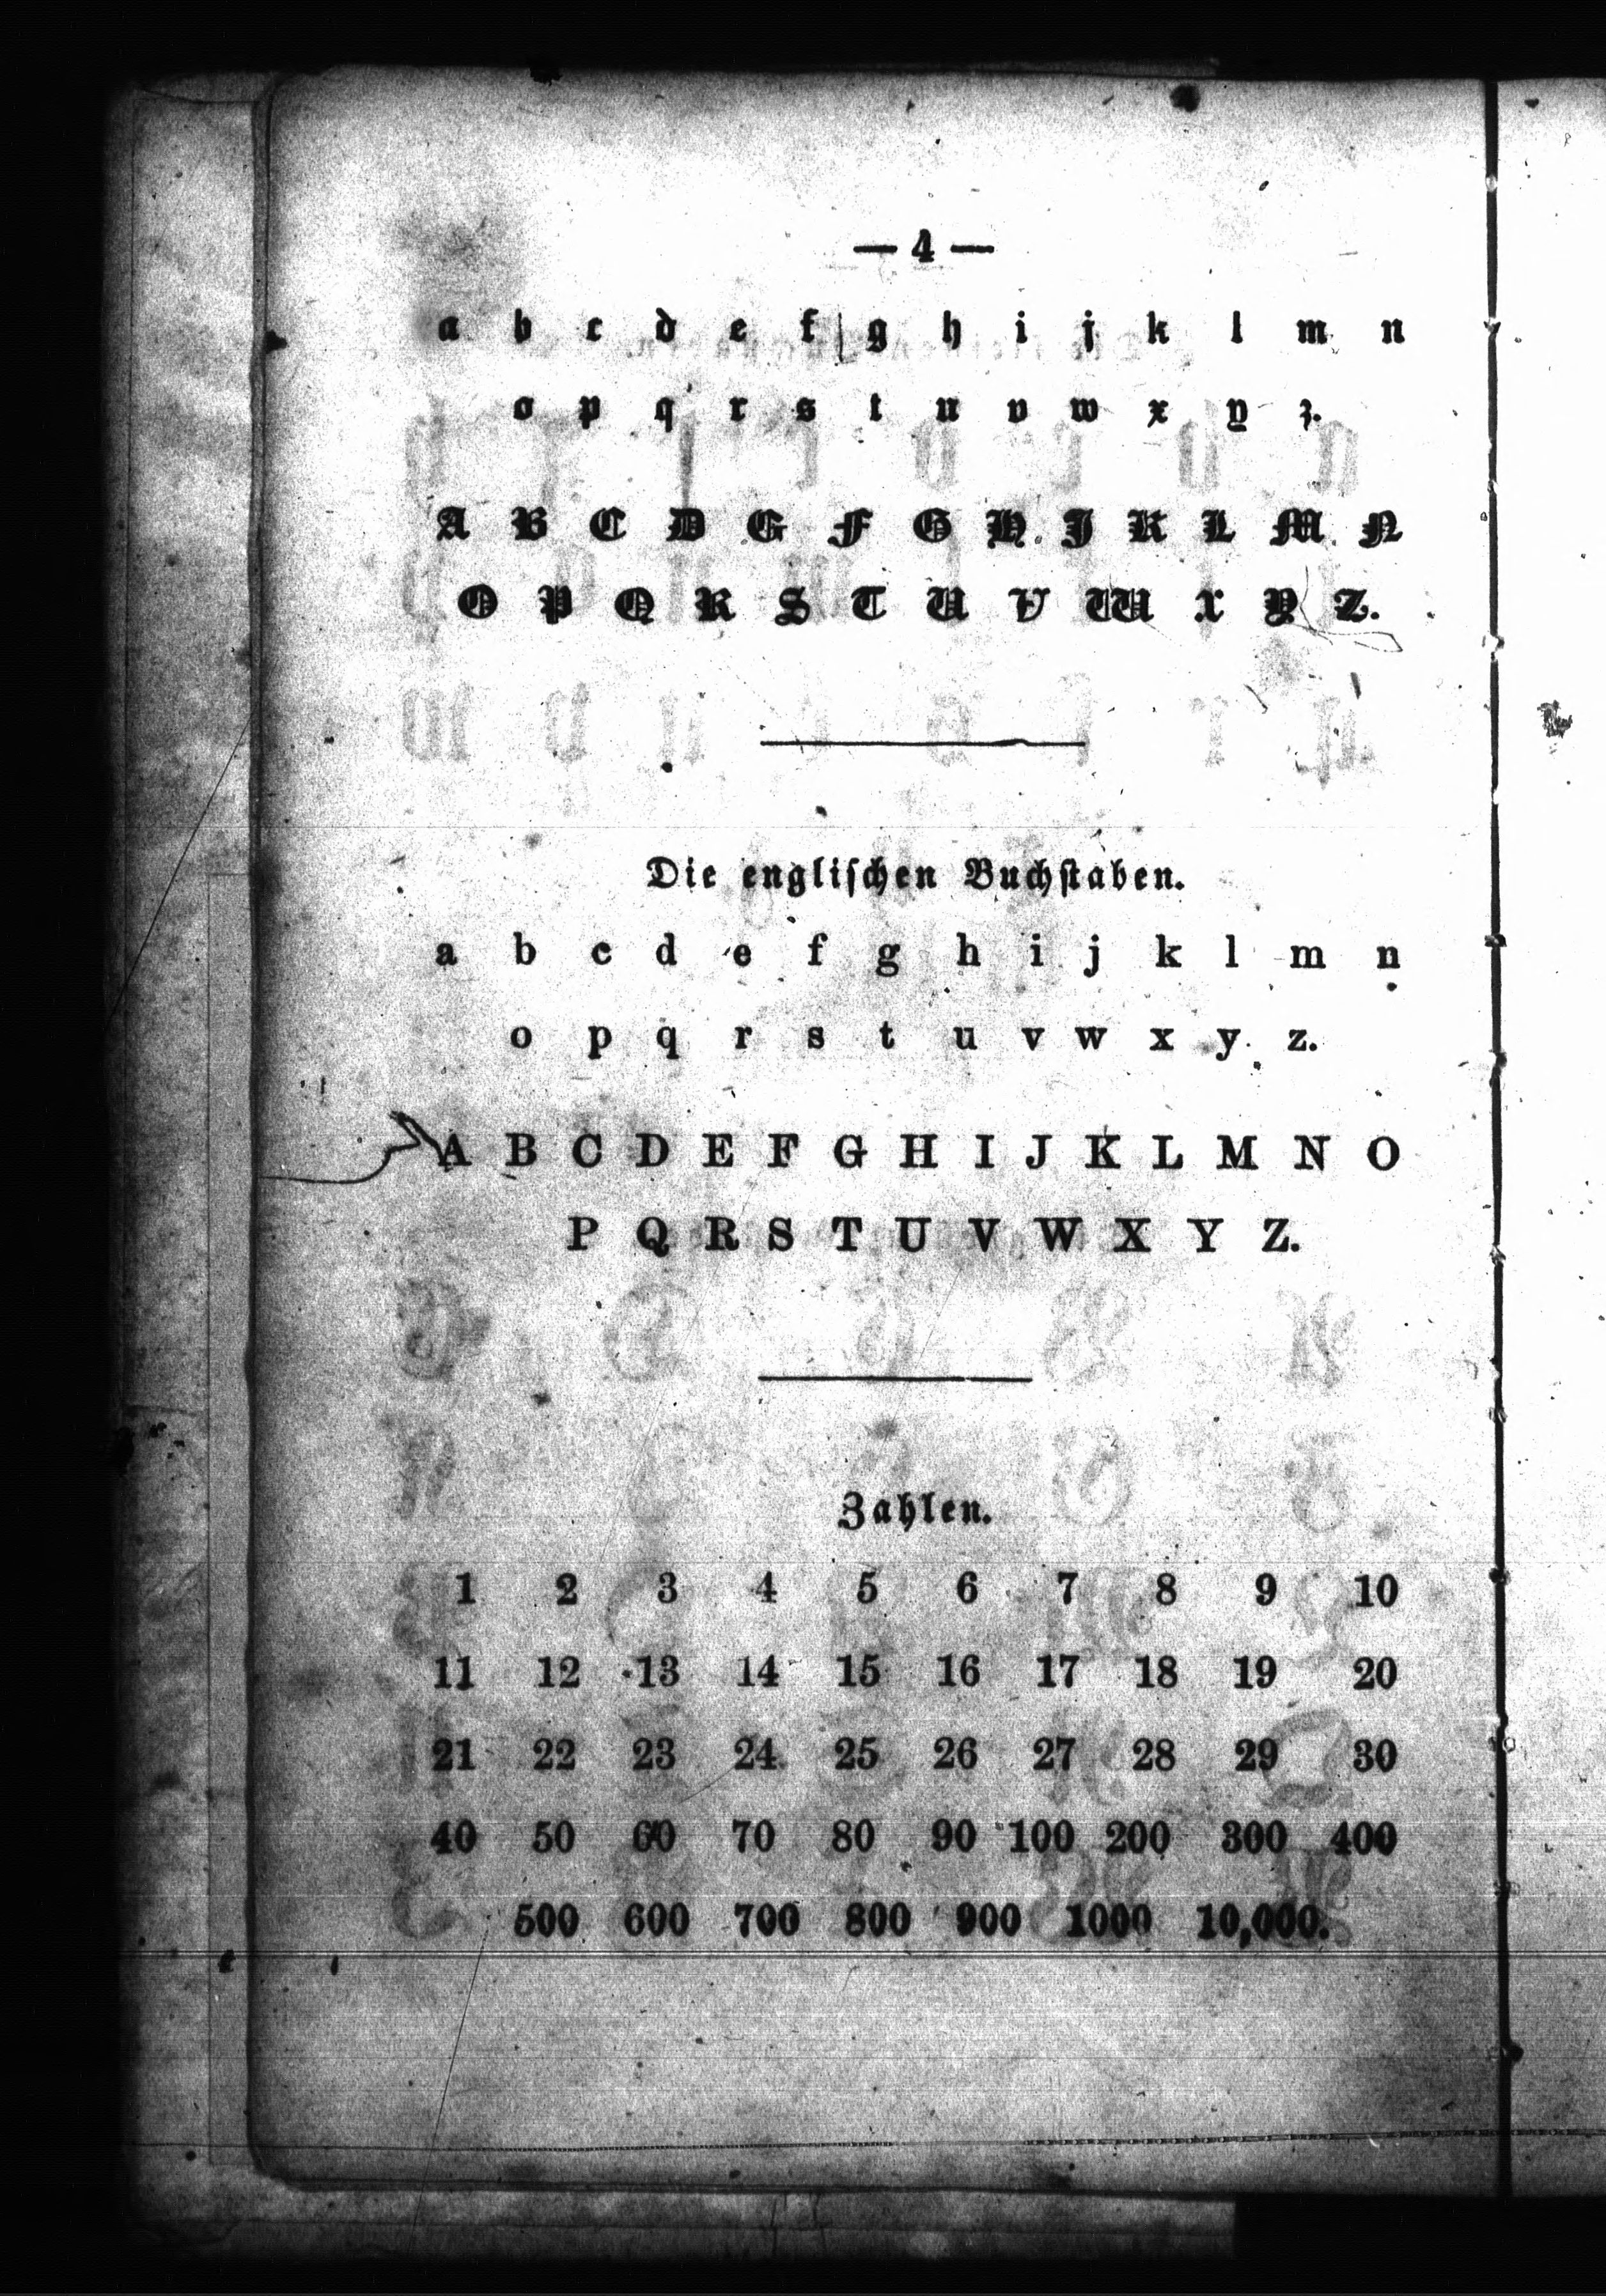 — 4 —
a b c d e f g h i j k l m n
o p q r s t u v w x y z.
A B C D E F G H J K L M N
O P Q R S T U V W X Y Z.
Die englischen Buchstaben.
a b c d e f g h i j k l m n
o p q r s t u v w x y z.
A B C D E F G H I J K L M N O
P Q R S T U V W X Y Z.
Zahlen.
1 2 3 4 5 6 7 8 9 10
11 12 13 14 15 16 17 18 19 20
21 22 23 24 25 26 27 28 29 30
40 50 60 70 80 90 100 200 300 400
500 600 700 800 900 1000 10,000.